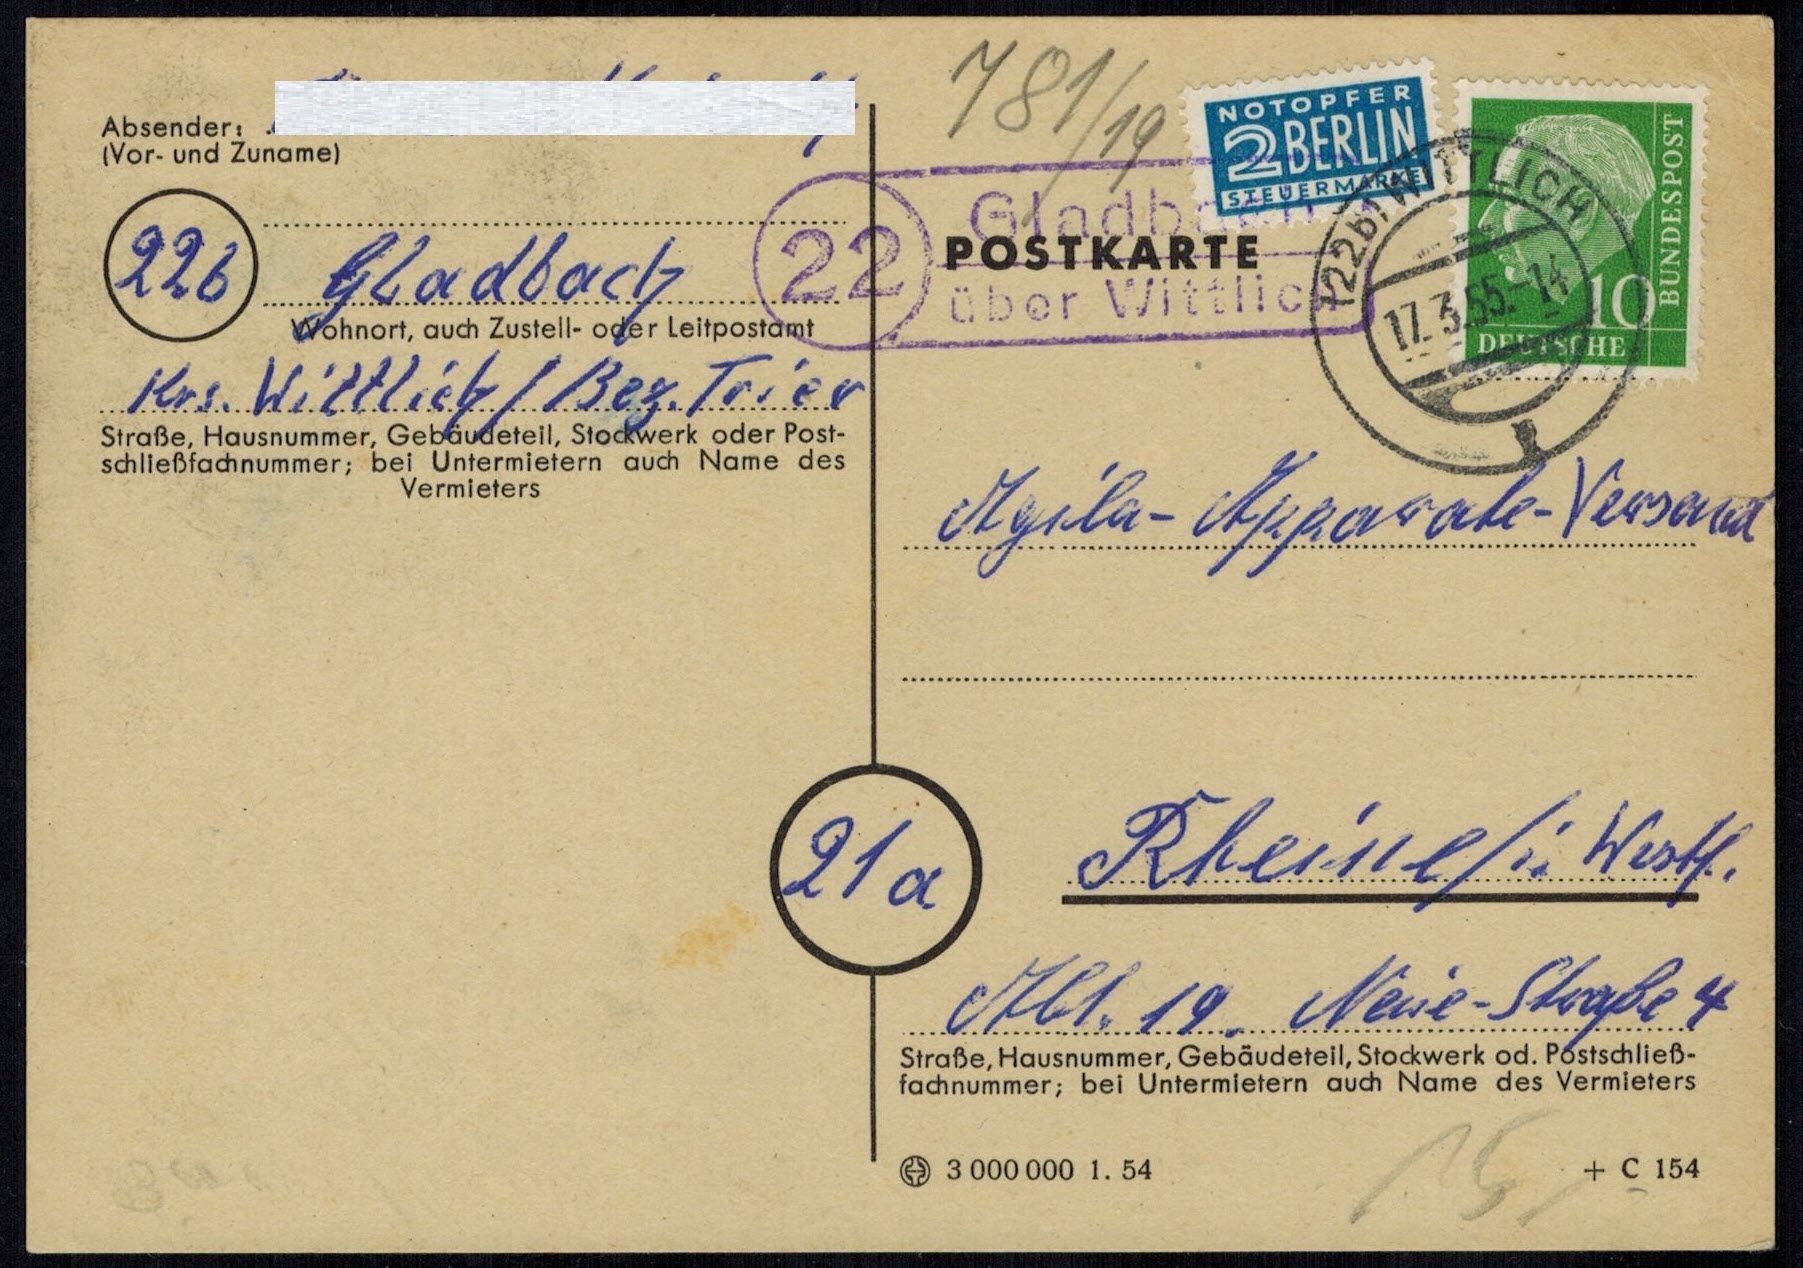 Absender:
(Vor- und Zuname)
22b
Gladbach
Wohnort, auch Zustell- oder Leitpostamt
Krs. Wittlich/Bez. Trier
Straße, Hausnummer, Gebäudeteil, Stockwerk oder Post-
schließfachnummer; bei Untermietern auch Name des
Vermieters
781/19
NOTOPFER
2 BERLIN
STEUERMARKE
DEUTSCHE
BUNDESPOST
10
(22b) WITTLICH
17.3.55.-14
22
Gladbach
über Wittlich
POSTKARTE
Agila-Apparate-Versand
21a
Rheine/i. Westf.
Abt. 19. Neue-Straße 4
Straße, Hausnummer, Gebäudeteil, Stockwerk od. Postschließ-
fachnummer; bei Untermietern auch Name des Vermieters
3 000 000 1. 54
+ C 154